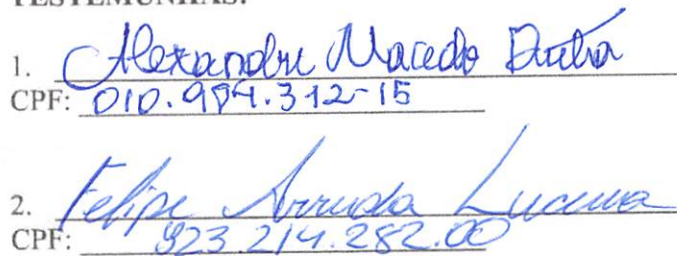 TESTEMUNHAS:
1. Alexandre Macedo Dutra
CPF: 010.984.312-15
2. Felipe Arruda Lucena
CPF: 923.214.282.00